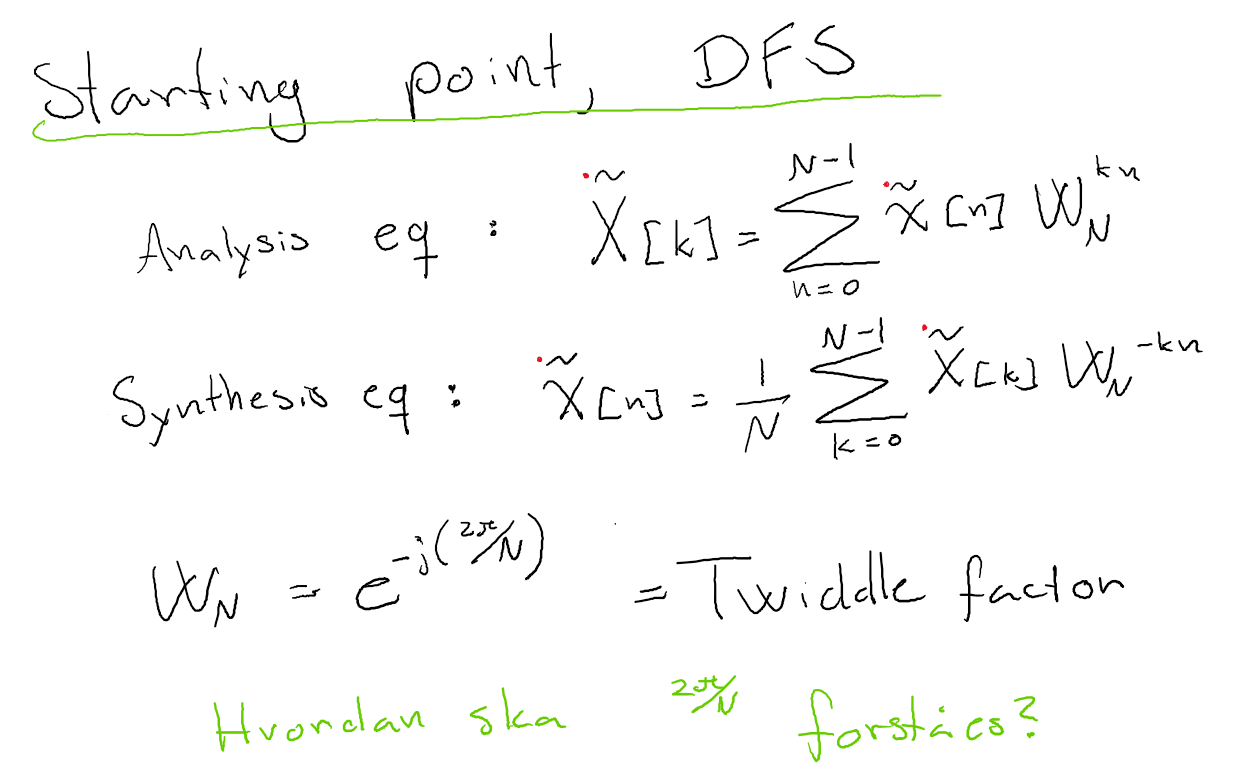 Starting point, DFS
Analysis eq : X̃[k] = ∑_{n=0}^{N-1} x̃[n] W_N^{kn}
Synthesis eq : x̃[n] = 1/N ∑_{k=0}^{N-1} X̃[k] W_N^{-kn}
W_N = e^{-j(2π/N)} = Twiddle factor
Hvordan ska 2π/N forståes?